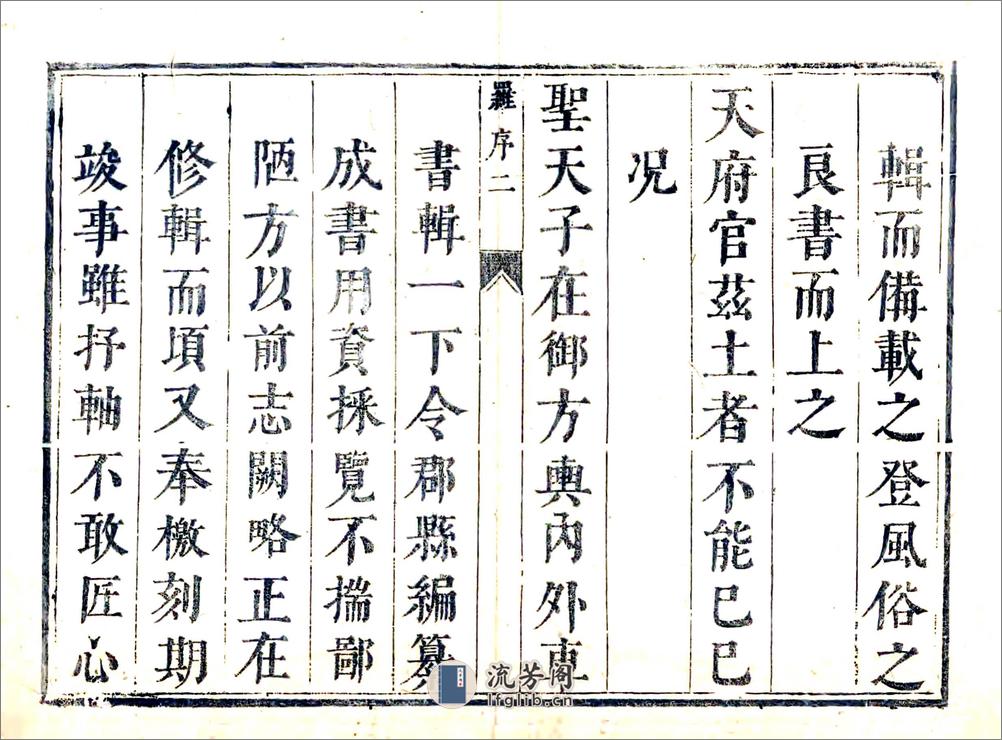 輯而備載之登風俗之
良書而上之
天府官茲土者不能已已
况
聖天子在御方輿內外車
羅序二
書輯一下令郡縣編纂
成書用資採覽不揣鄙
陋方以前志闕略正在
修輯而頃又奉檄刻期
竣事雖抒軸不敢匠心
流芳阁
lfglib.cn